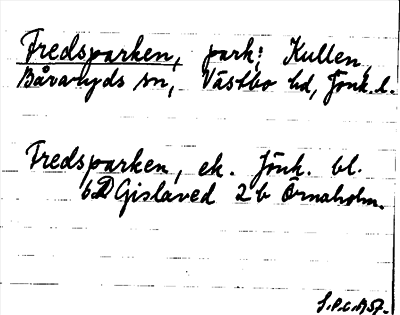 Fredsparken, park; Kullen,
Båraryds sn, Västbo hd, Jönk. l.
Fredsparken, ek. Jönk. bl.
6D Gislaved 2 b Örnaholm.